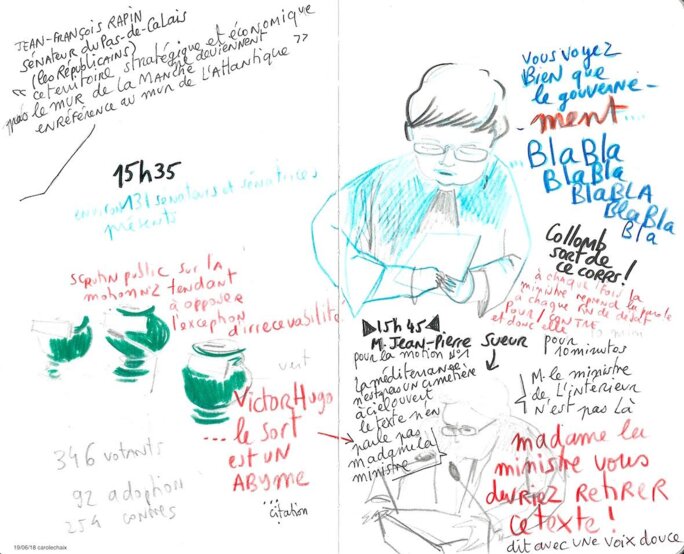 JEAN-FRANÇOIS RAPIN
SÉNATEUR DU PAS-DE-CALAIS
(les RÉPUBLICAINS)
" ce territoire stratégique et économique
que deviennent
près le MUR DE LA MANCHE
EN RÉFÉRENCE AU MUR DE L'ATLANTIQUE "
15h35
environ 131 sénateurs et sénatrices
présents
SCRUTIN PUBLIC SUR LA
motion n°2 tendant
à opposer
l'exception
d'irrecevabilité
vert
346 votants
92 adoption
254 contres
VICTOR HUGO
... le sort
est UN
ABYME
citation
19/06/18 carolechaix
VOUS VOYEZ
BIEN QUE
le gouverne-
-ment...
BlaBla
BlaBla
BlaBLA
BlaBla
Bla
COLLOMB
SORT DE
CE CORPS !
à chaque fois la
ministre reprend la parole
à chaque fin de débat
POUR / CONTRE
et donc elle
15h45
M. JEAN-PIERRE SUEUR
pour la motion N°1
pour
10 minutes
la méditerranée
n'est pas un cimetière
à ciel ouvert
le texte n'en
parle pas
madame la
ministre
M. le ministre
DE L'INTÉRIEUR
N'EST PAS LÀ
madame la
ministre vous
devriez RETIRER
CE TEXTE !
dit avec une voix douce